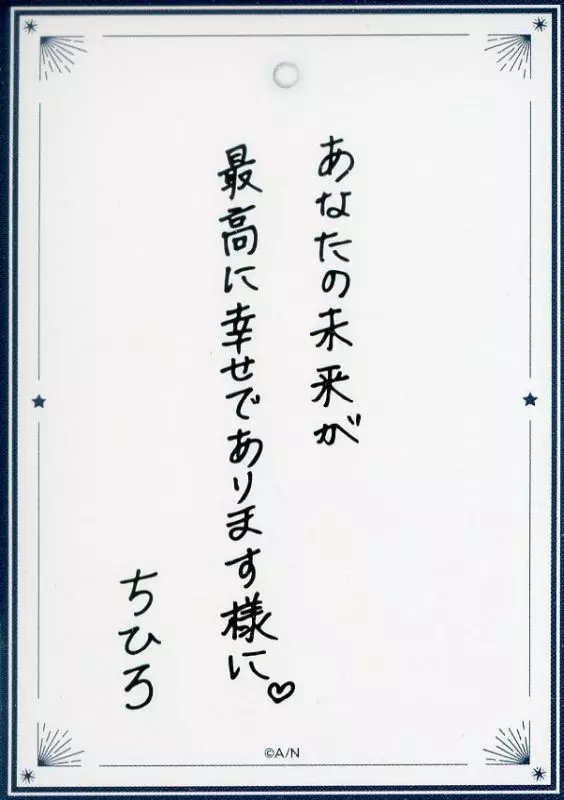 あなたの未来が
最高に幸せであります様に♡
ちひろ
©A/N